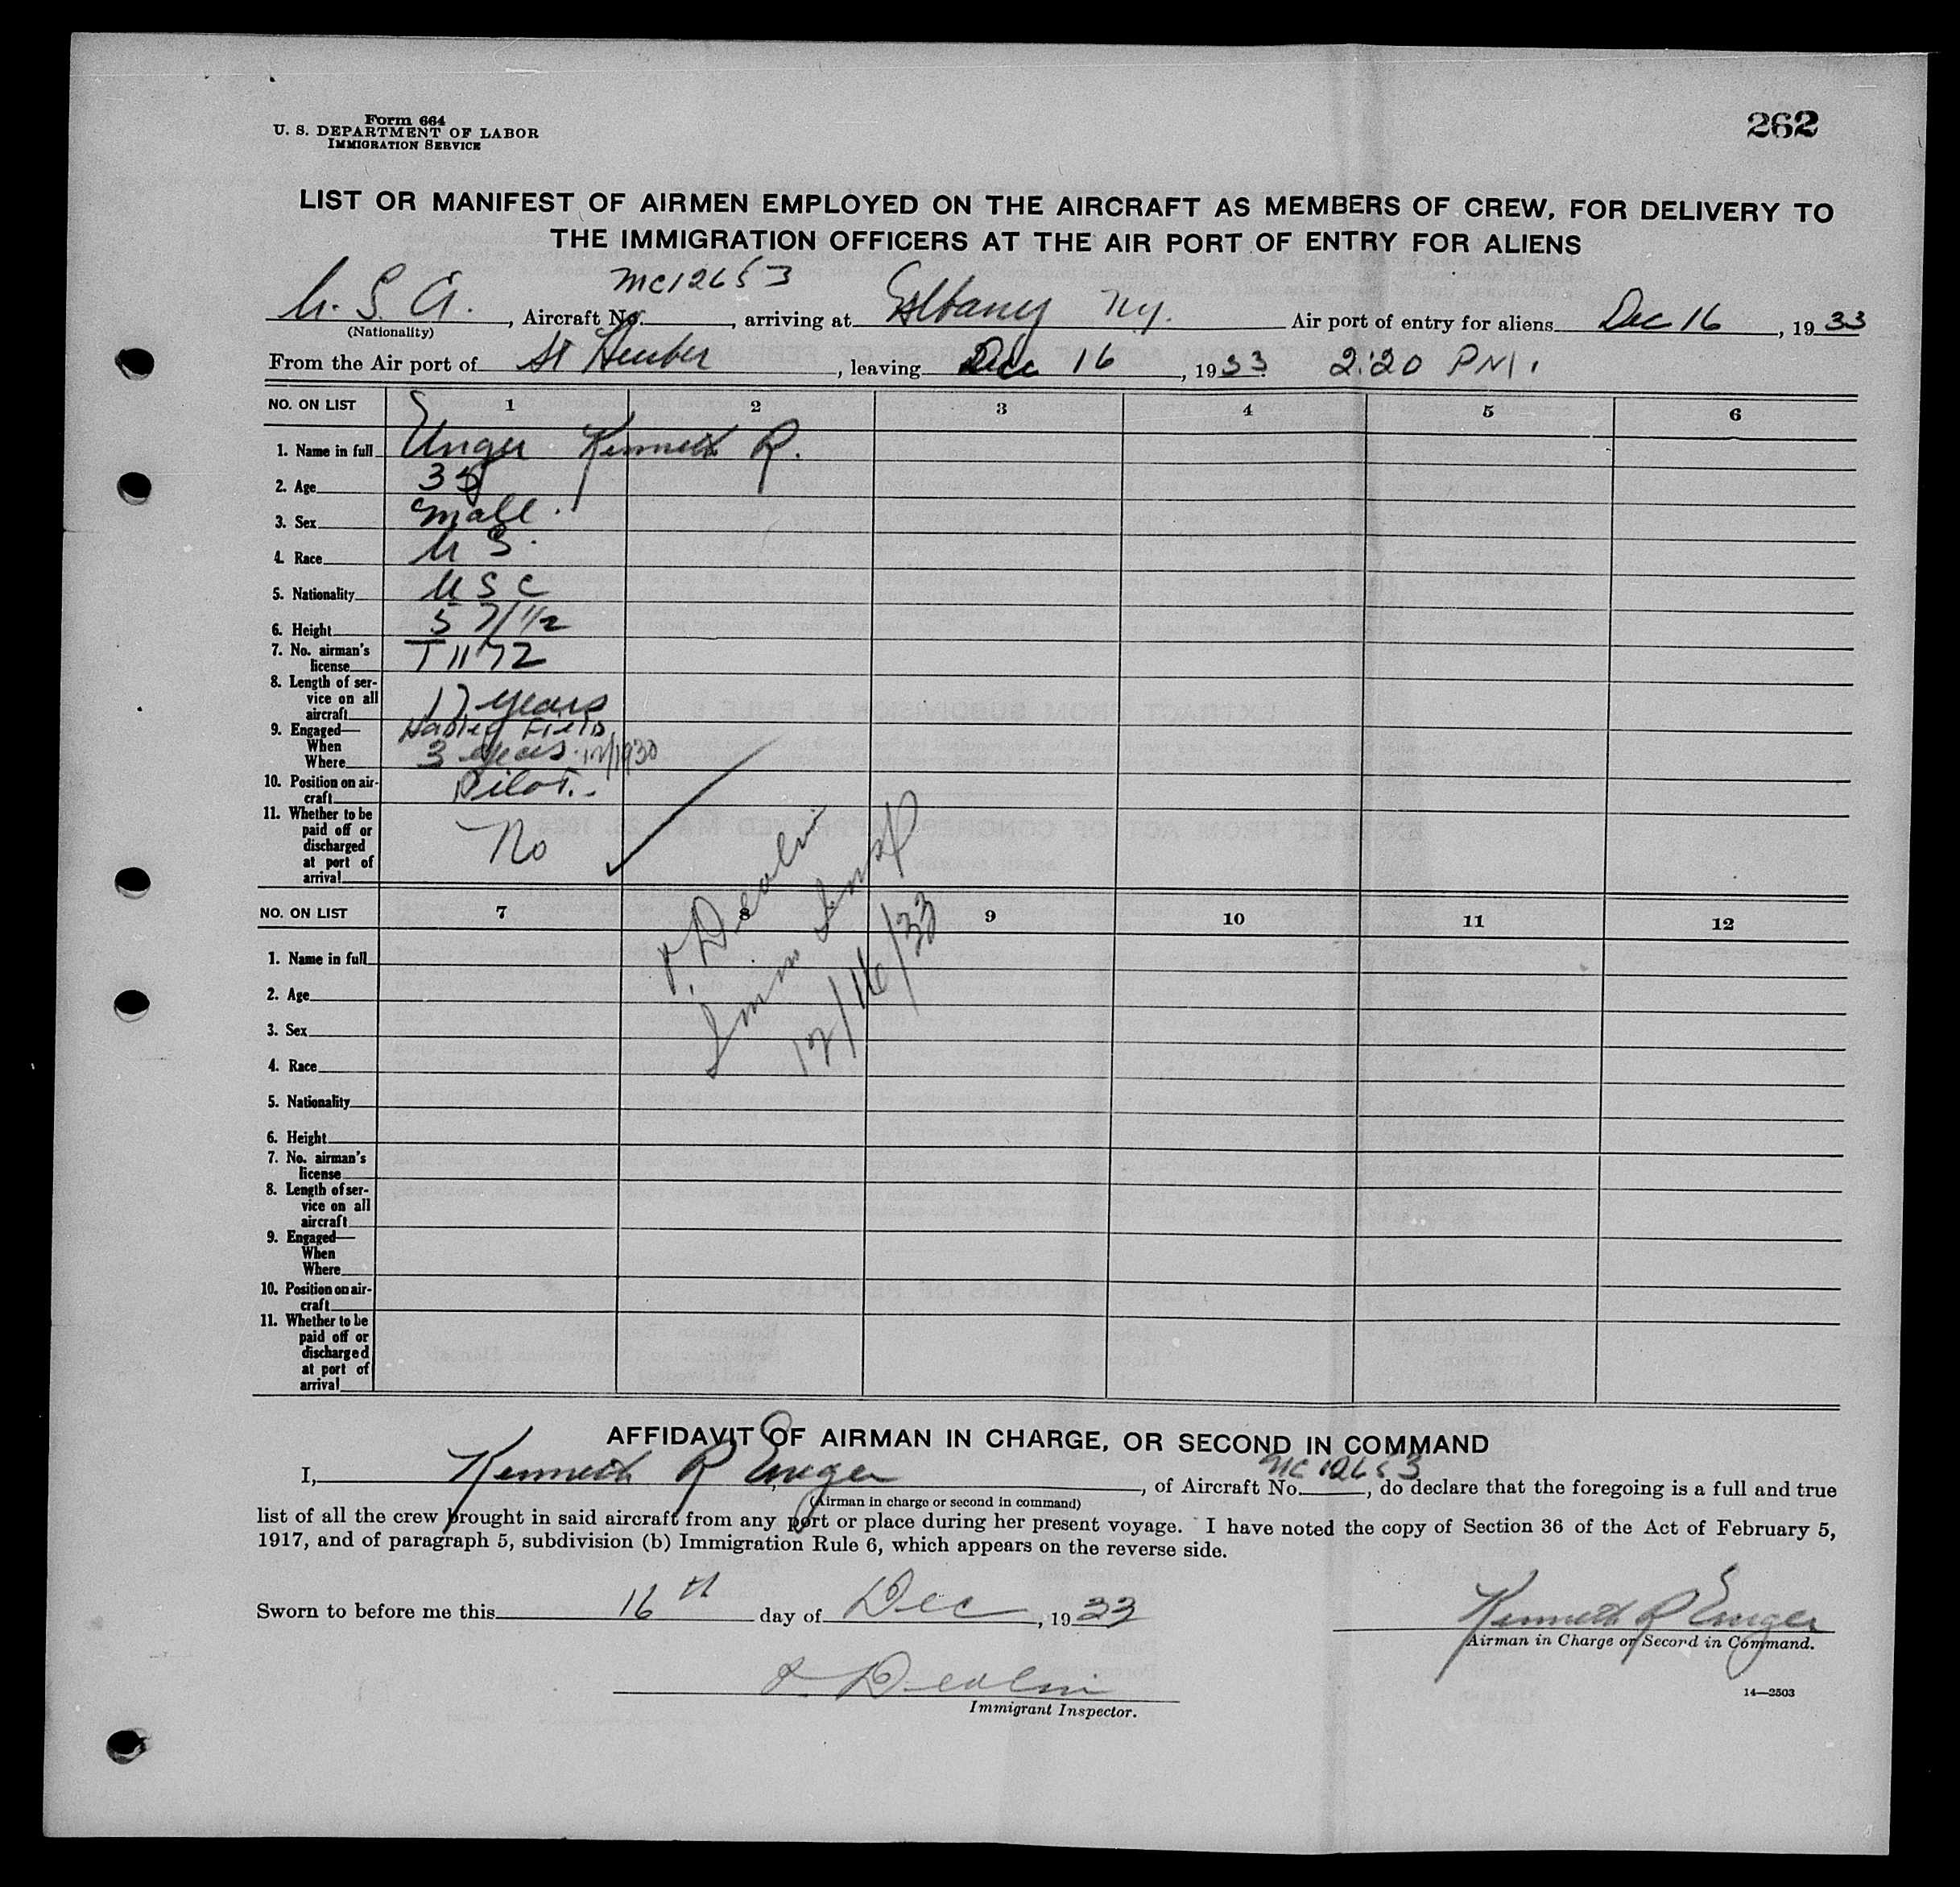 Form 664
U. S. DEPARTMENT OF LABOR
IMMIGRATION SERVICE
262
LIST OR MANIFEST OF AIRMEN EMPLOYED ON THE AIRCRAFT AS MEMBERS OF CREW, FOR DELIVERY TO
THE IMMIGRATION OFFICERS AT THE AIR PORT OF ENTRY FOR ALIENS
NC12653
U. S. A. , Aircraft No. , arriving at Albany N.Y. Air port of entry for aliens Dec 16 , 1933
(Nationality)
From the Air port of St Huber , leaving Dec 16 , 1933 2:20 PM.
NO. ON LIST 1 2 3 4 5 6
1. Name in full Unger Kenneth R.
2. Age 35
3. Sex Male.
4. Race U S.
5. Nationality U S C
6. Height 5 7/1/2
7. No. airman's
license T 1172
8. Length of ser-
vice on all
aircraft 17 years
9. Engaged— Hadley Field
When
Where 3 years. 12/1930
10. Position on air-
craft Pilot.
11. Whether to be
paid off or
discharged
at port of
arrival No
Devlin
Imm Insp
12/16/33
NO. ON LIST 7 8 9 10 11 12
1. Name in full
2. Age
3. Sex
4. Race
5. Nationality
6. Height
7. No. airman's
license
8. Length of ser-
vice on all
aircraft
9. Engaged—
When
Where
10. Position on air-
craft
11. Whether to be
paid off or
discharged
at port of
arrival
AFFIDAVIT OF AIRMAN IN CHARGE, OR SECOND IN COMMAND
NC 12653
I, Kenneth R Unger , of Aircraft No. , do declare that the foregoing is a full and true
(Airman in charge or second in command)
list of all the crew brought in said aircraft from any port or place during her present voyage. I have noted the copy of Section 36 of the Act of February 5,
1917, and of paragraph 5, subdivision (b) Immigration Rule 6, which appears on the reverse side.
Sworn to before me this 16th day of Dec , 1933
Kenneth R Unger
Airman in Charge or Second in Command.
Devlin
Immigrant Inspector.
14—2503